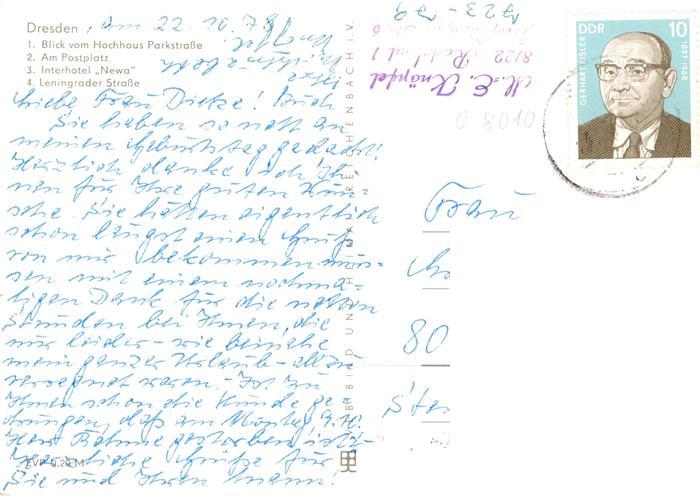 Dresden, am 22.10.78
1. Blick vom Hochhaus Parkstraße
2. Am Postplatz
3. Interhotel „Newa"
4. Leningrader Straße
Liebe Frau Dieke! Auch
Sie haben so nett an
meinen Geburtstag gedacht!
Herzlich danke ich Ih-
nen für Ihre guten Wün-
sche. Sie hätten eigentlich
schon längst einen Gruß
von mir bekommen müs-
sen mit einem nochma-
ligen Dank für die netten
Stunden bei Ihnen, die
nur leider - wie beinahe
mein ganzer Urlaub - allzu
verregnet waren. - Ist zu
Ihnen schon die Kunde ge-
drungen, daß am Montag
Herr Böhme gestorben ist? -
Herzliche Grüße für
Sie und Ihren Mann!
EVP 0,20 M
M.-E. Knöpfel
8122 Radebeul 1
08010
DDR 10
GERHART EISLER 1897-1968
Frau
80